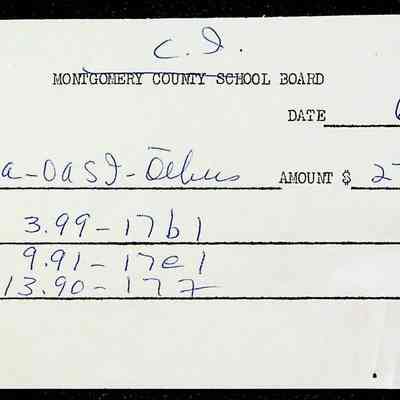 C. I.
MONTGOMERY COUNTY SCHOOL BOARD
DATE 6
a-OASI-Others AMOUNT $ 27
3.99-17b1
9.91-17e1
13.90-177